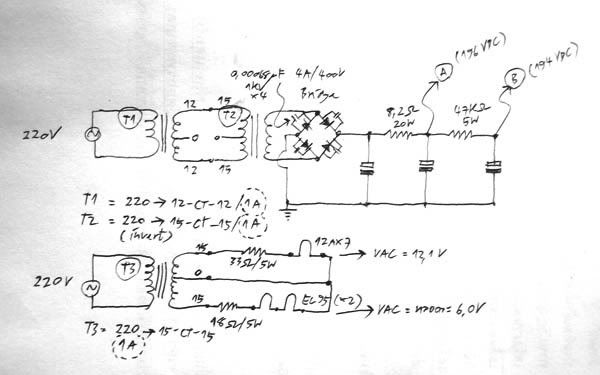 A
(196 VDC)
B
(194 VDC)
0,00068µF
1KV
x4
4A/400V
Bridge
12
15
T1
T2
0
0
220V
8,2Ω
20W
47KΩ
5W
12
15
T1 = 220 → 12-CT-12/1A
T2 = 220 → 15-CT-15/1A
(invert)
15
12AX7
33Ω/5W
VAC = 12,1V
T3
0
220V
15
18Ω/5W
EL95 (x2)
T3 = 220 → 15-CT-15
1A